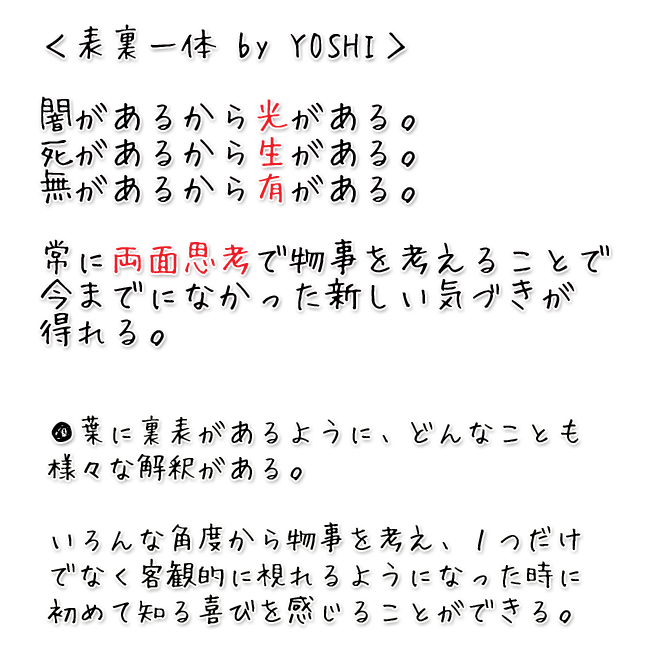 ＜表裏一体 by YOSHI＞
闇があるから光がある。
死があるから生がある。
無があるから有がある。
常に両面思考で物事を考えることで
今までになかった新しい気づきが
得れる。
葉に裏表があるように、どんなことも
様々な解釈がある。
いろんな角度から物事を考え、1つだけ
でなく客観的に視れるようになった時に
初めて知る喜びを感じることができる。